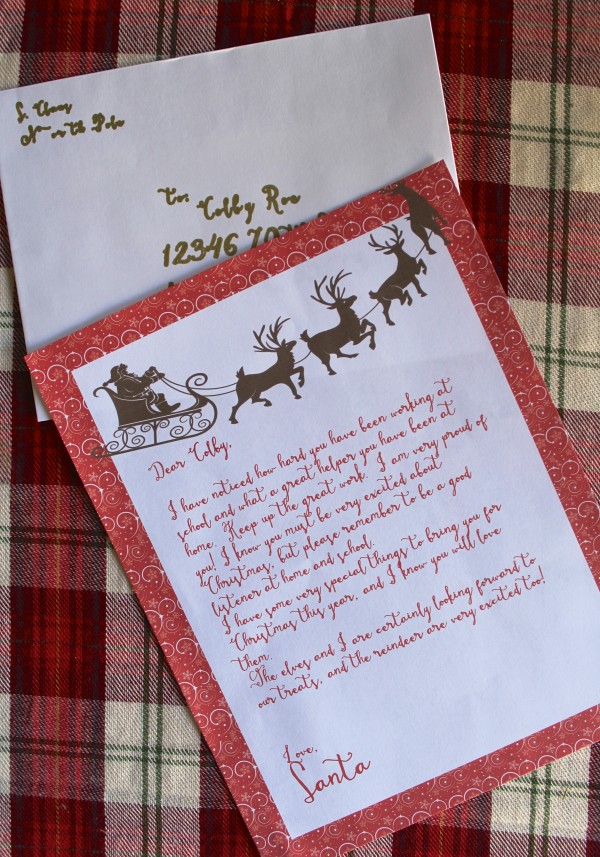 S. Claus
North Pole
To:
Colby Roo
12346
Dear Colby,
I have noticed how hard you have been working at
school and what a great helper you have been at
home. Keep up the great work. I am very proud of
you! I know you must be very excited about
Christmas, but please remember to be a good
listener at home and school.
I have some very special things to bring you for
Christmas this year, and I know you will love
them.
The elves and I are certainly looking forward to
our treats, and the reindeer are very excited too!
Love,
Santa